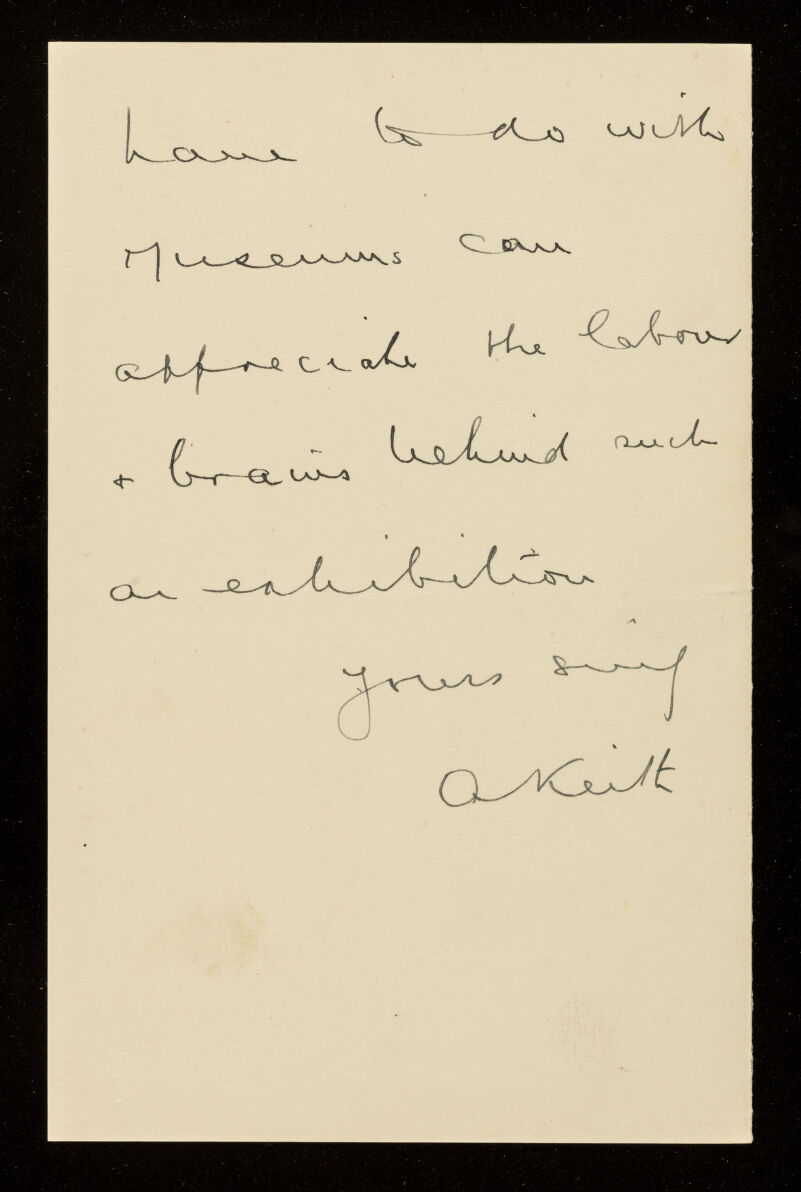 have to do with
Museums can
appreciate the labour
+ brains behind such
an exhibition
Yours sinly
A Keith